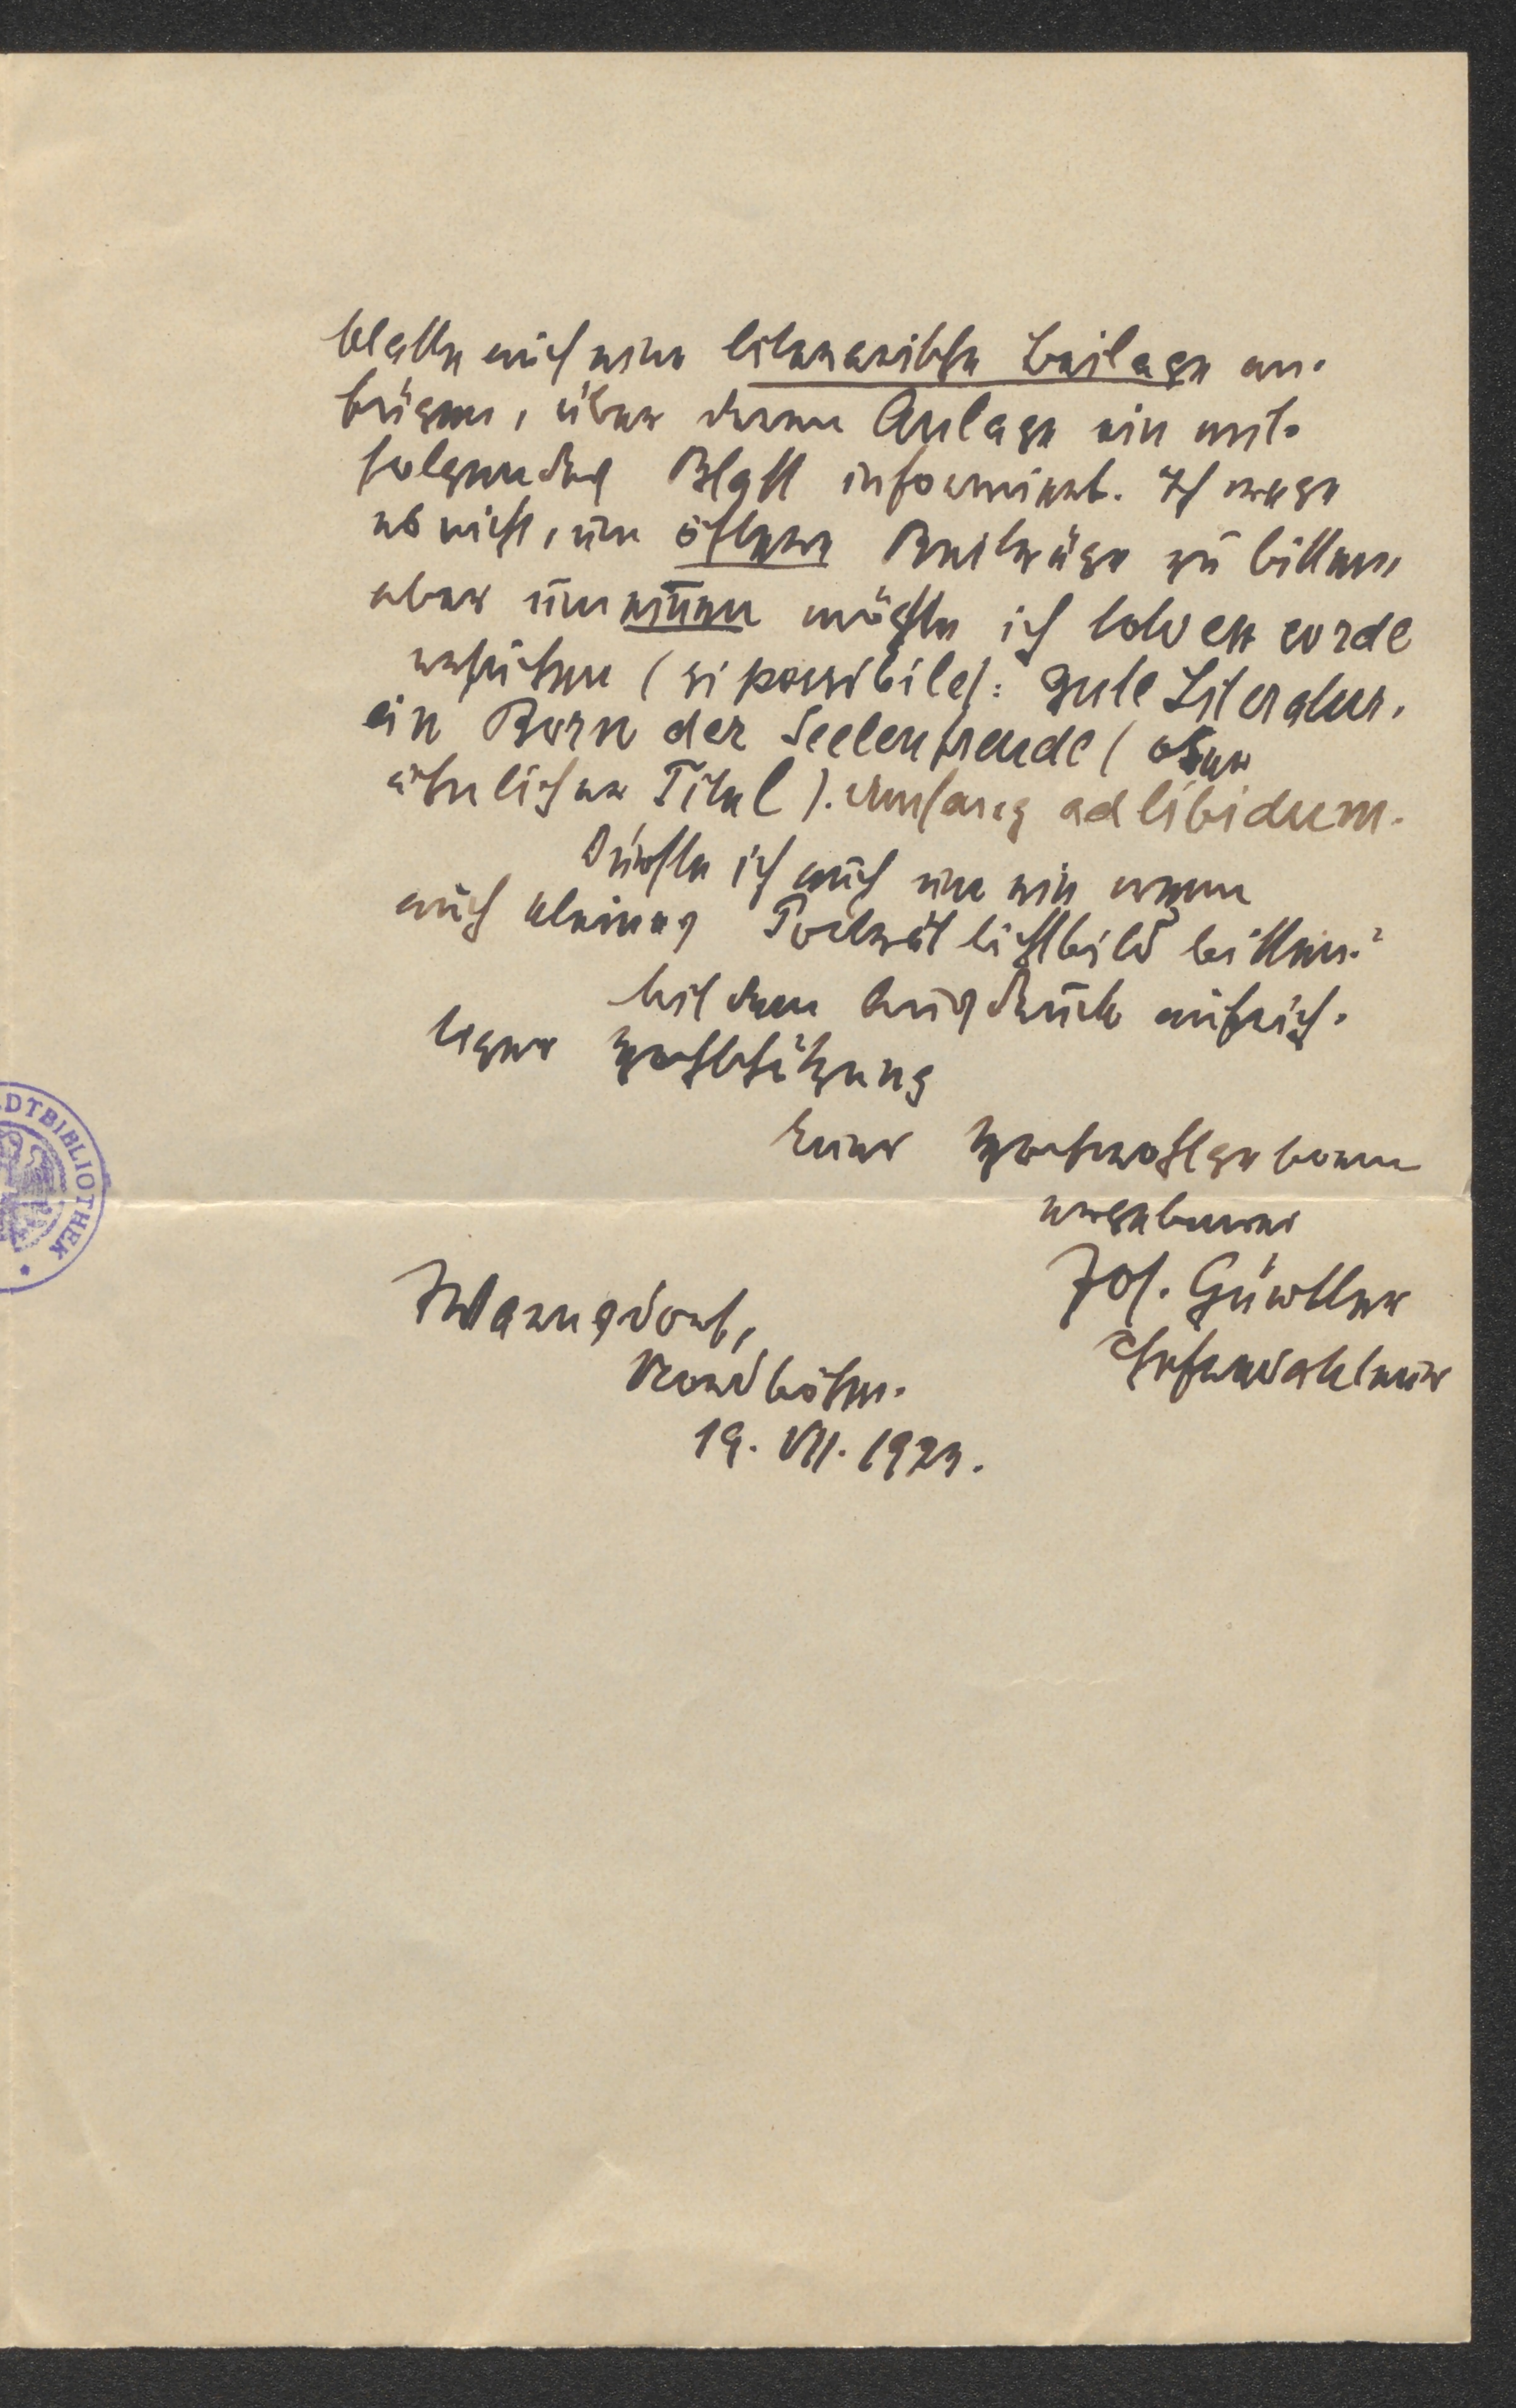 blatte auch eine literarische Beilage an-
fügen, über deren Anlage ein mit-
folgendes Blatt informiert. Ich wage
es nicht, um öftere Beiträge zu bitten,
aber um einen möchte ich toto ex corde
ersuchen (si possibile): Gute Literatur,
ein Born der Seelenfreude (oder
ähnlicher Titel). Umfang ad libidum.
Dürfte ich auch um ein wenn
auch kleines Porträtlichtbild bitten?
Mit dem Ausdruck aufrich-
tiger Hochschätzung
Euer Hochwohlgeboren
ergebener
Jos. Gürtler
Chefredakteur
Warnsdorf,
Nordböhm.
19. VII. 1923.
DTBIBLIOTHEK